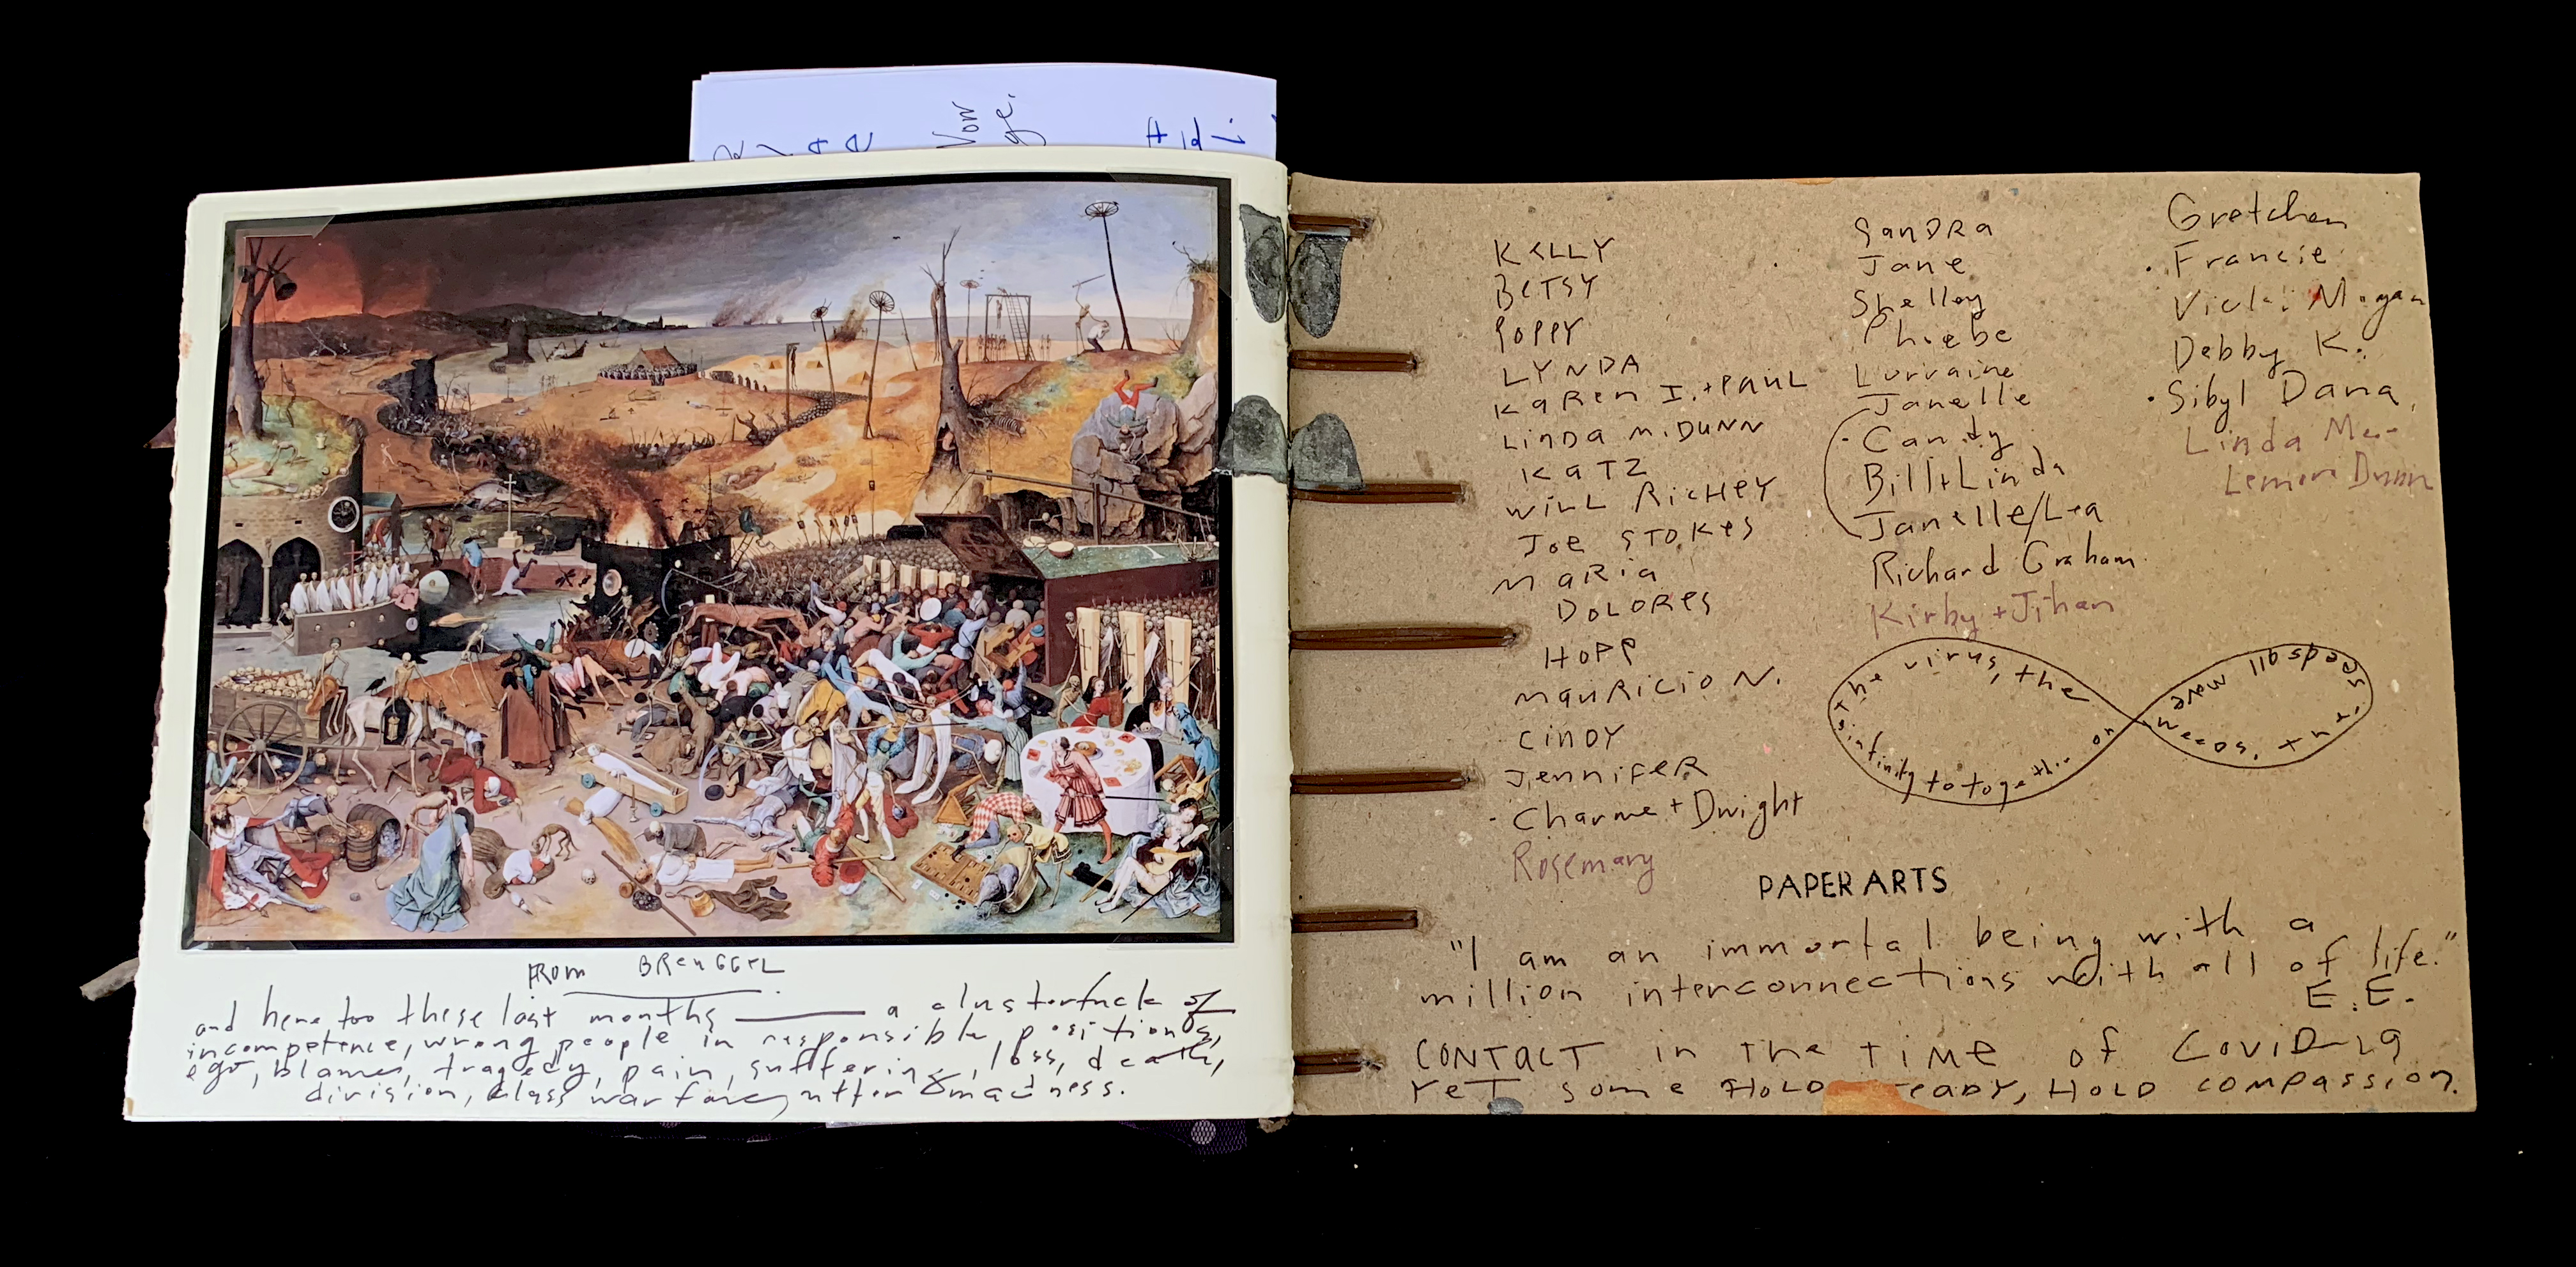 FROM BREUGGEL
and here too these last months — a clusterfuck of
incompetence, wrong people in responsible positions,
ego, blame, tragedy, pain, suffering, loss, death,
division, class warfare, utter madness.
KELLY
BETSY
POPPY
LYNDA
KAREN I. + PAUL
LINDA M. DUNN
KATZ
WILL RICHEY
JOE STOKES
MARIA
DOLORES
HOPP
MAURICIO N.
CINDY
JENNIFER
· Charme + Dwight
Rosemary
SANDRA
Jane
Shelley
Phoebe
Lorraine
Janelle
· Candy
Bill + Linda
Janelle/Lea
Richard Graham
Kirby + Jihan
Gretchen
· Francie
Vicki
Debby K.
· Sibyl Dana
Linda
Dunn
The virus, the
needs all move
infinity to together in on
PAPER ARTS
"I am an immortal being with a
million interconnections with all of life."
E.E.
CONTACT in THE TIME of COVID-19
YET some HOLD HOLD COMPASSION.